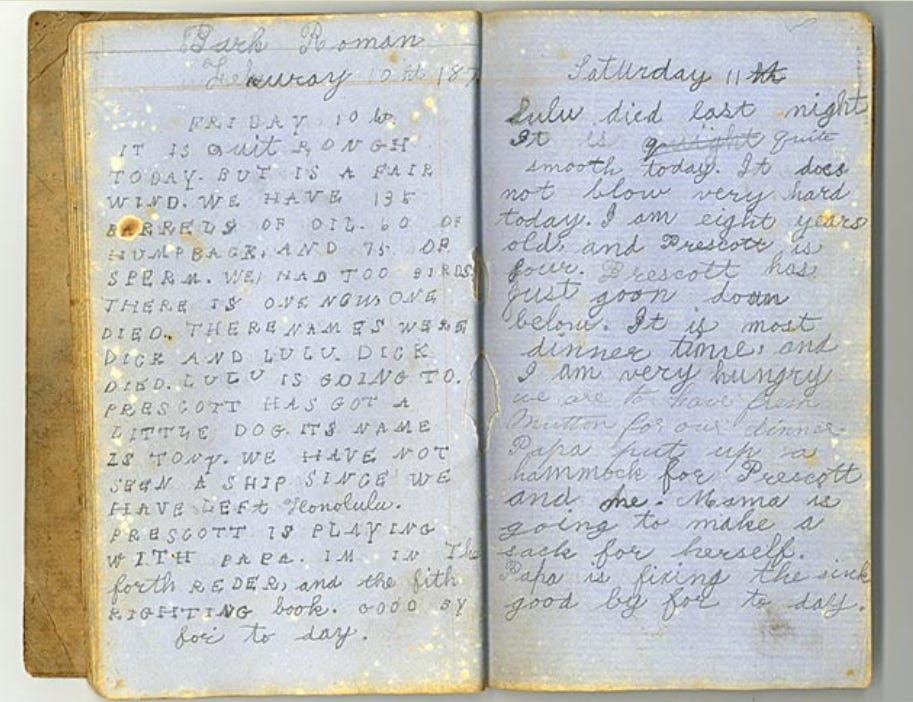 Bark Roman
Feburary 10 ht 187
FRIDAY 10 ht.
IT IS Quit ROUGH
TODAY. BUT IS A FAIR
WIND. WE HAVE 135
BARRELS OF OIL. 60 OF
HUMPBACK, AND 75. OF
SPERM. WE, HAD TOO BIRDS
THERE IS ONE NOW. ONE
DIED. THERE NAMES WERE
DICK AND LULU. DICK
DIED. LULU IS GOING TO.
PRESCOTT HAS GOT A
LITTLE DOG. ITS NAME
IS TONY. WE HAVE NOT
SEEN A SHIP SINCE WE
HAVE LEFt Honolulu.
PRESCOTT IS PLAYING
WITH PAPA. IM IN The
forth REDER, and the fith
RIGHTING book. GOOD BY
for to day.
Saturday 11 th
Lulu died last night
It is quite
smooth today. It does
not blow very hard
today. I am eight years
old, and Prescott is
four. Prescott has
just goon down
below. It is most
dinner time, and
I am very hungry
we are to have fresh
Mutton for our dinner
Papa put up a
hammock for Prescott
and me. Mama is
going to make a
sack for herself.
Papa is fixing the sink
good by for to day.